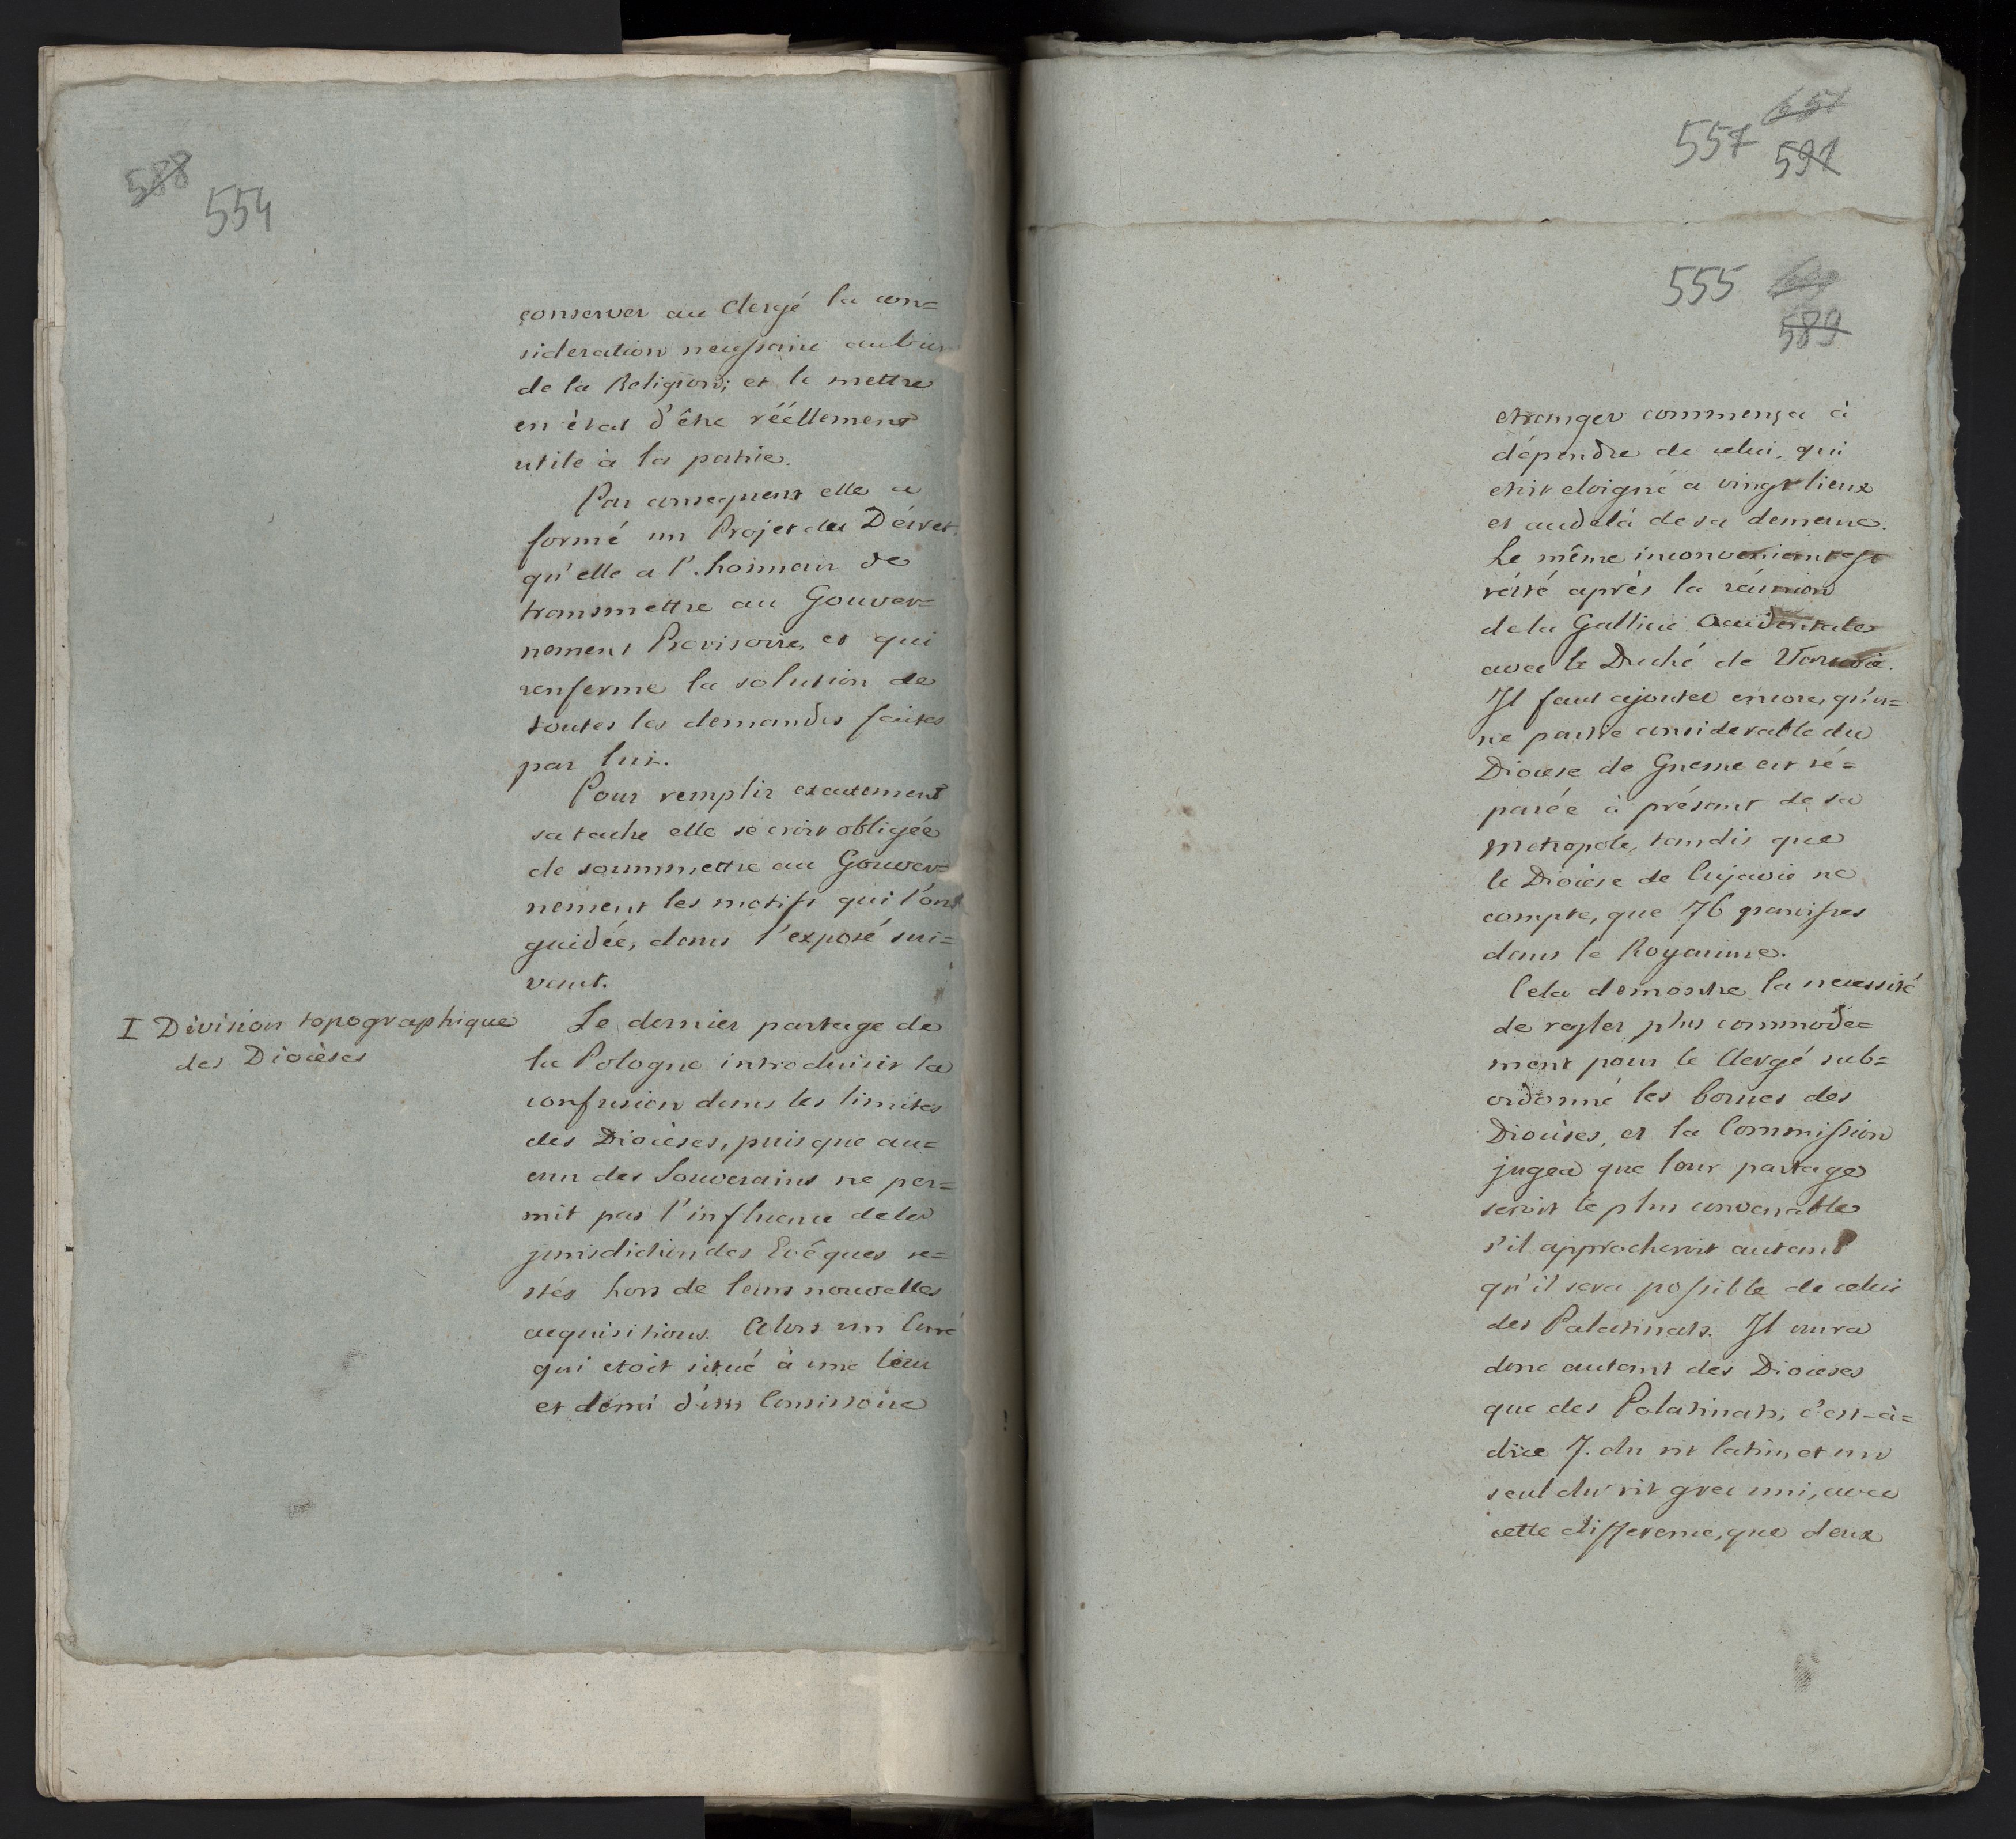 588
554
conserver au Clergé la con=
sideration necessaire au bien
de la Religion; et le mettre
en état d'être réellement
utile à la patrie.
Par consequent elle a
formé un Projet du Décret,
qu'elle a l'honneur de
transmettre au Gouver=
nement Provisoire, et qui
renferme la solution de
toutes les demandes faites
par lui.
Pour remplir exactement
sa tache elle se croit obligée
de soummettre au Gouver=
nement les motifs qui l'ont
guidée, dans l'exposé sui=
vant.
I Division topographique
des Diocèses
Le dernier partage de
la Pologne introduisit la
confusion dans les limites
des Diocèses, puisque au=
cun des Souverains ne per=
mit pas l'influence de la
jurisdiction des Evêques re=
stés hors de leurs nouvelles
acquisitions. Alors un Curé
qui etoit situé à une lieu
et demi d'un Consistoire
557
591
555
589
etranger commença à
dépendre de celui, qui
etoit eloigné a vingt lieux
et audelà de sa demeure.
Le même inconvenient est
resté après la réunion
de la Gallicie Occidentale
avec le Duché de Varsovie.
Il faut ajouter encore, qu'u=
ne partie considerable du
Diocese de Gnesne est sé=
parée à présent de sa
metropole, tandis que
le Diocèse de Cujavie ne
compte, que 76 paroisses
dans le Royaume.
Cela demontre la necessité
de regler plus commode=
ment pour le Clergé sub=
ordonné les bornes des
Diocèses, et la Commission
jugea que leur partage
seroit le plus convenable
s'il approcheroit autant
qu'il sera possible de celui
des Palatinats. Il aura
donc autant des Dioceses
que des Palatinats, c'est-à=
dire 7. du rit latin, et un
seul du rit grec uni, avec
cette difference, que deux